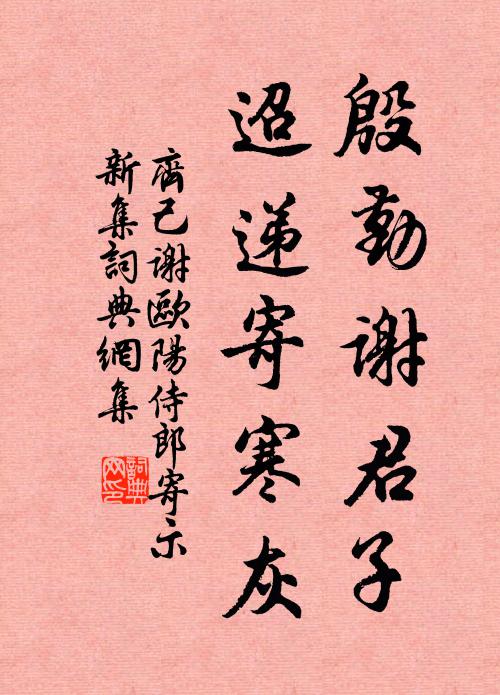 殷勤謝君子
迢递寄寒灰
齊己谢歐陽侍郎寄示
新集詞典網集
詞典网印